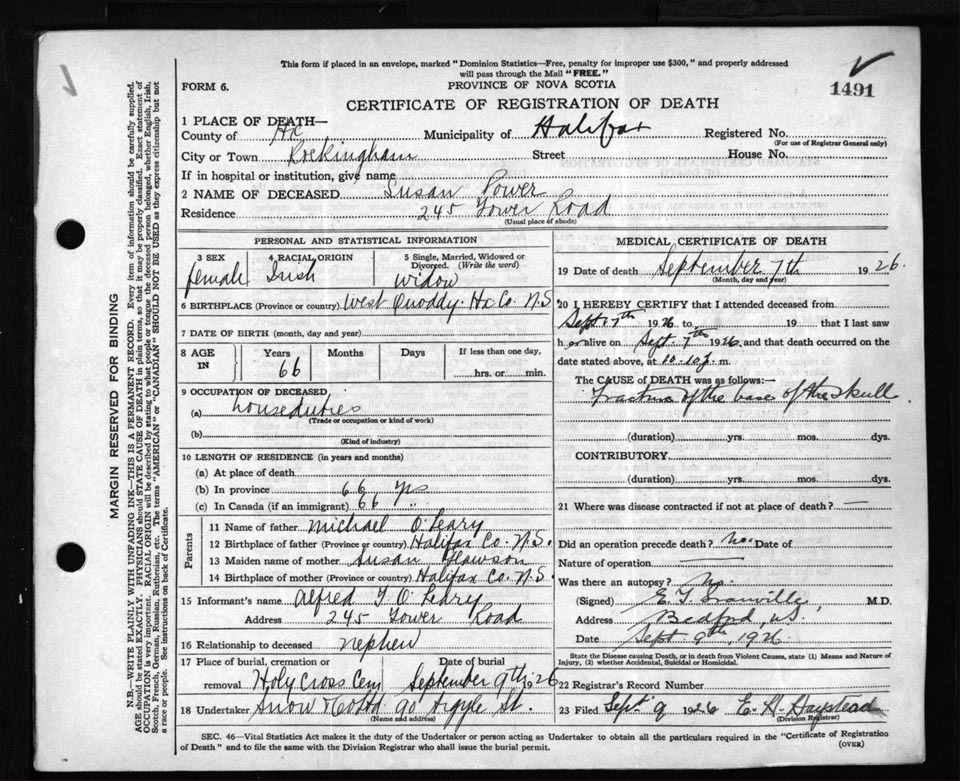 This form if placed in an envelope, marked "Dominion Statistics—Free, penalty for improper use $300," and properly addressed
will pass through the Mail "FREE."
FORM 6. PROVINCE OF NOVA SCOTIA 1491
CERTIFICATE OF REGISTRATION OF DEATH
1 PLACE OF DEATH—
County of Hx Municipality of Halifax Registered No.
(For use of Registrar General only)
City or Town Rockingham Street House No.
If in hospital or institution, give name
2 NAME OF DECEASED Susan Power
Residence 245 Tower Road
(Usual place of abode)
PERSONAL AND STATISTICAL INFORMATION
3 SEX 4 RACIAL ORIGIN 5 Single, Married, Widowed or
Divorced. (Write the word)
female Irish Widow
6 BIRTHPLACE (Province or country) West Quoddy Hx Co. N.S.
7 DATE OF BIRTH (month, day and year)
8 AGE IN Years Months Days If less than one day,
66 hrs. or min.
9 OCCUPATION OF DECEASED
(a) houseduties
(Trade or occupation or kind of work)
(b)
(Kind of industry)
10 LENGTH OF RESIDENCE (in years and months)
(a) At place of death
(b) In province 66 yrs
(c) In Canada (if an immigrant) 66 "
Parents
11 Name of father Michael O'Leary
12 Birthplace of father (Province or country) Halifax Co. N.S.
13 Maiden name of mother Susan
14 Birthplace of mother (Province or country) Halifax Co. N.S.
15 Informant's name Alfred J O'Leary
Address 245 Tower Road
16 Relationship to deceased nephew
17 Place of burial, cremation or Date of burial
removal Holy Cross Cem September 9th 1926
18 Undertaker Snow & Co Ltd 90 Argyle St.
(Name and address)
MEDICAL CERTIFICATE OF DEATH
19 Date of death September 7th 1926.
(Month, day and year)
20 I HEREBY CERTIFY that I attended deceased from
Sept. 7th 1926 to 19 that I last saw
h er alive on Sept. 7th 1926 and that death occurred on the
date stated above, at 10.10 p. m.
The CAUSE OF DEATH was as follows:—
Fracture of the base of the skull
(duration) yrs. mos. dys.
CONTRIBUTORY
(duration) yrs. mos. dys.
21 Where was disease contracted if not at place of death? —
Did an operation precede death? no. Date of
Nature of operation —
Was there an autopsy? No.
(Signed) E. T. Granville, M.D.
Address Bedford, N.S.
Date Sept 9th, 1926.
State the Disease causing Death, or in death from Violent Causes, state (1) Means and Nature of
Injury, (2) whether Accidental, Suicidal or Homicidal.
22 Registrar's Record Number
23 Filed Sept 9 1926 E. H.
(Division Registrar)
SEC. 46—Vital Statistics Act makes it the duty of the Undertaker or person acting as Undertaker to obtain all the particulars required in the "Certificate of Registration
of Death" and to file the same with the Division Registrar who shall issue the burial permit. (OVER)
MARGIN RESERVED FOR BINDING
N.B.—WRITE PLAINLY WITH UNFADING INK—THIS IS A PERMANENT RECORD. Every item of information should be carefully supplied.
AGE should be stated EXACTLY. PHYSICIANS should STATE CAUSE OF DEATH in plain terms, so that it may be properly classified. Exact statement of
OCCUPATION is very important. RACIAL ORIGIN will be described by stating to what people or tongue the deceased person belonged, whether English, Irish,
Scotch, French, German, Russian, Ruthenian, etc. The terms "AMERICAN" or "CANADIAN" SHOULD NOT BE USED as they express citizenship but not
a race or people. See instructions on back of Certificate.